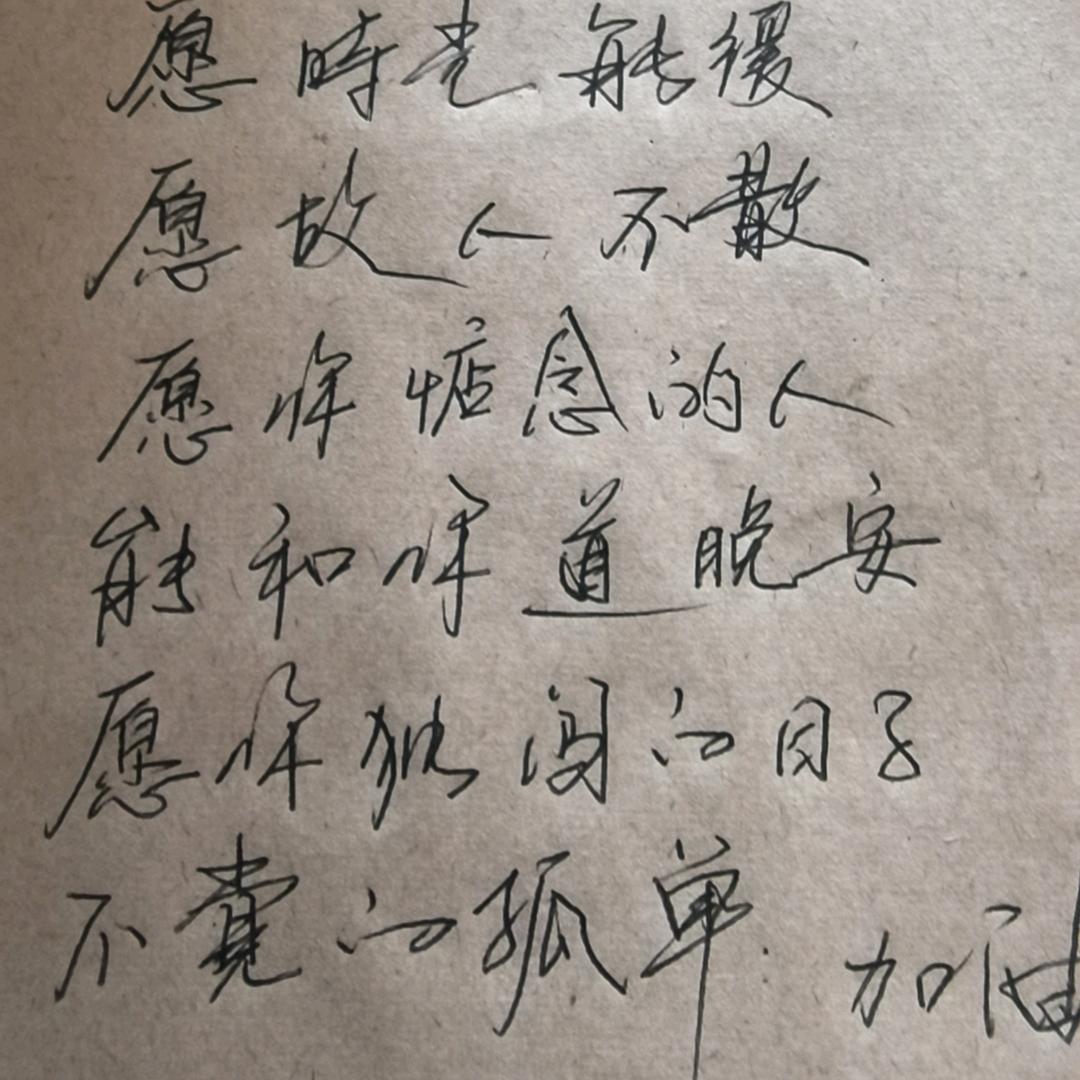 愿時光能缓
愿故人不散
愿你惦念的人
能和你道晚安
愿你独闯的日子
不觉的孤单 加油